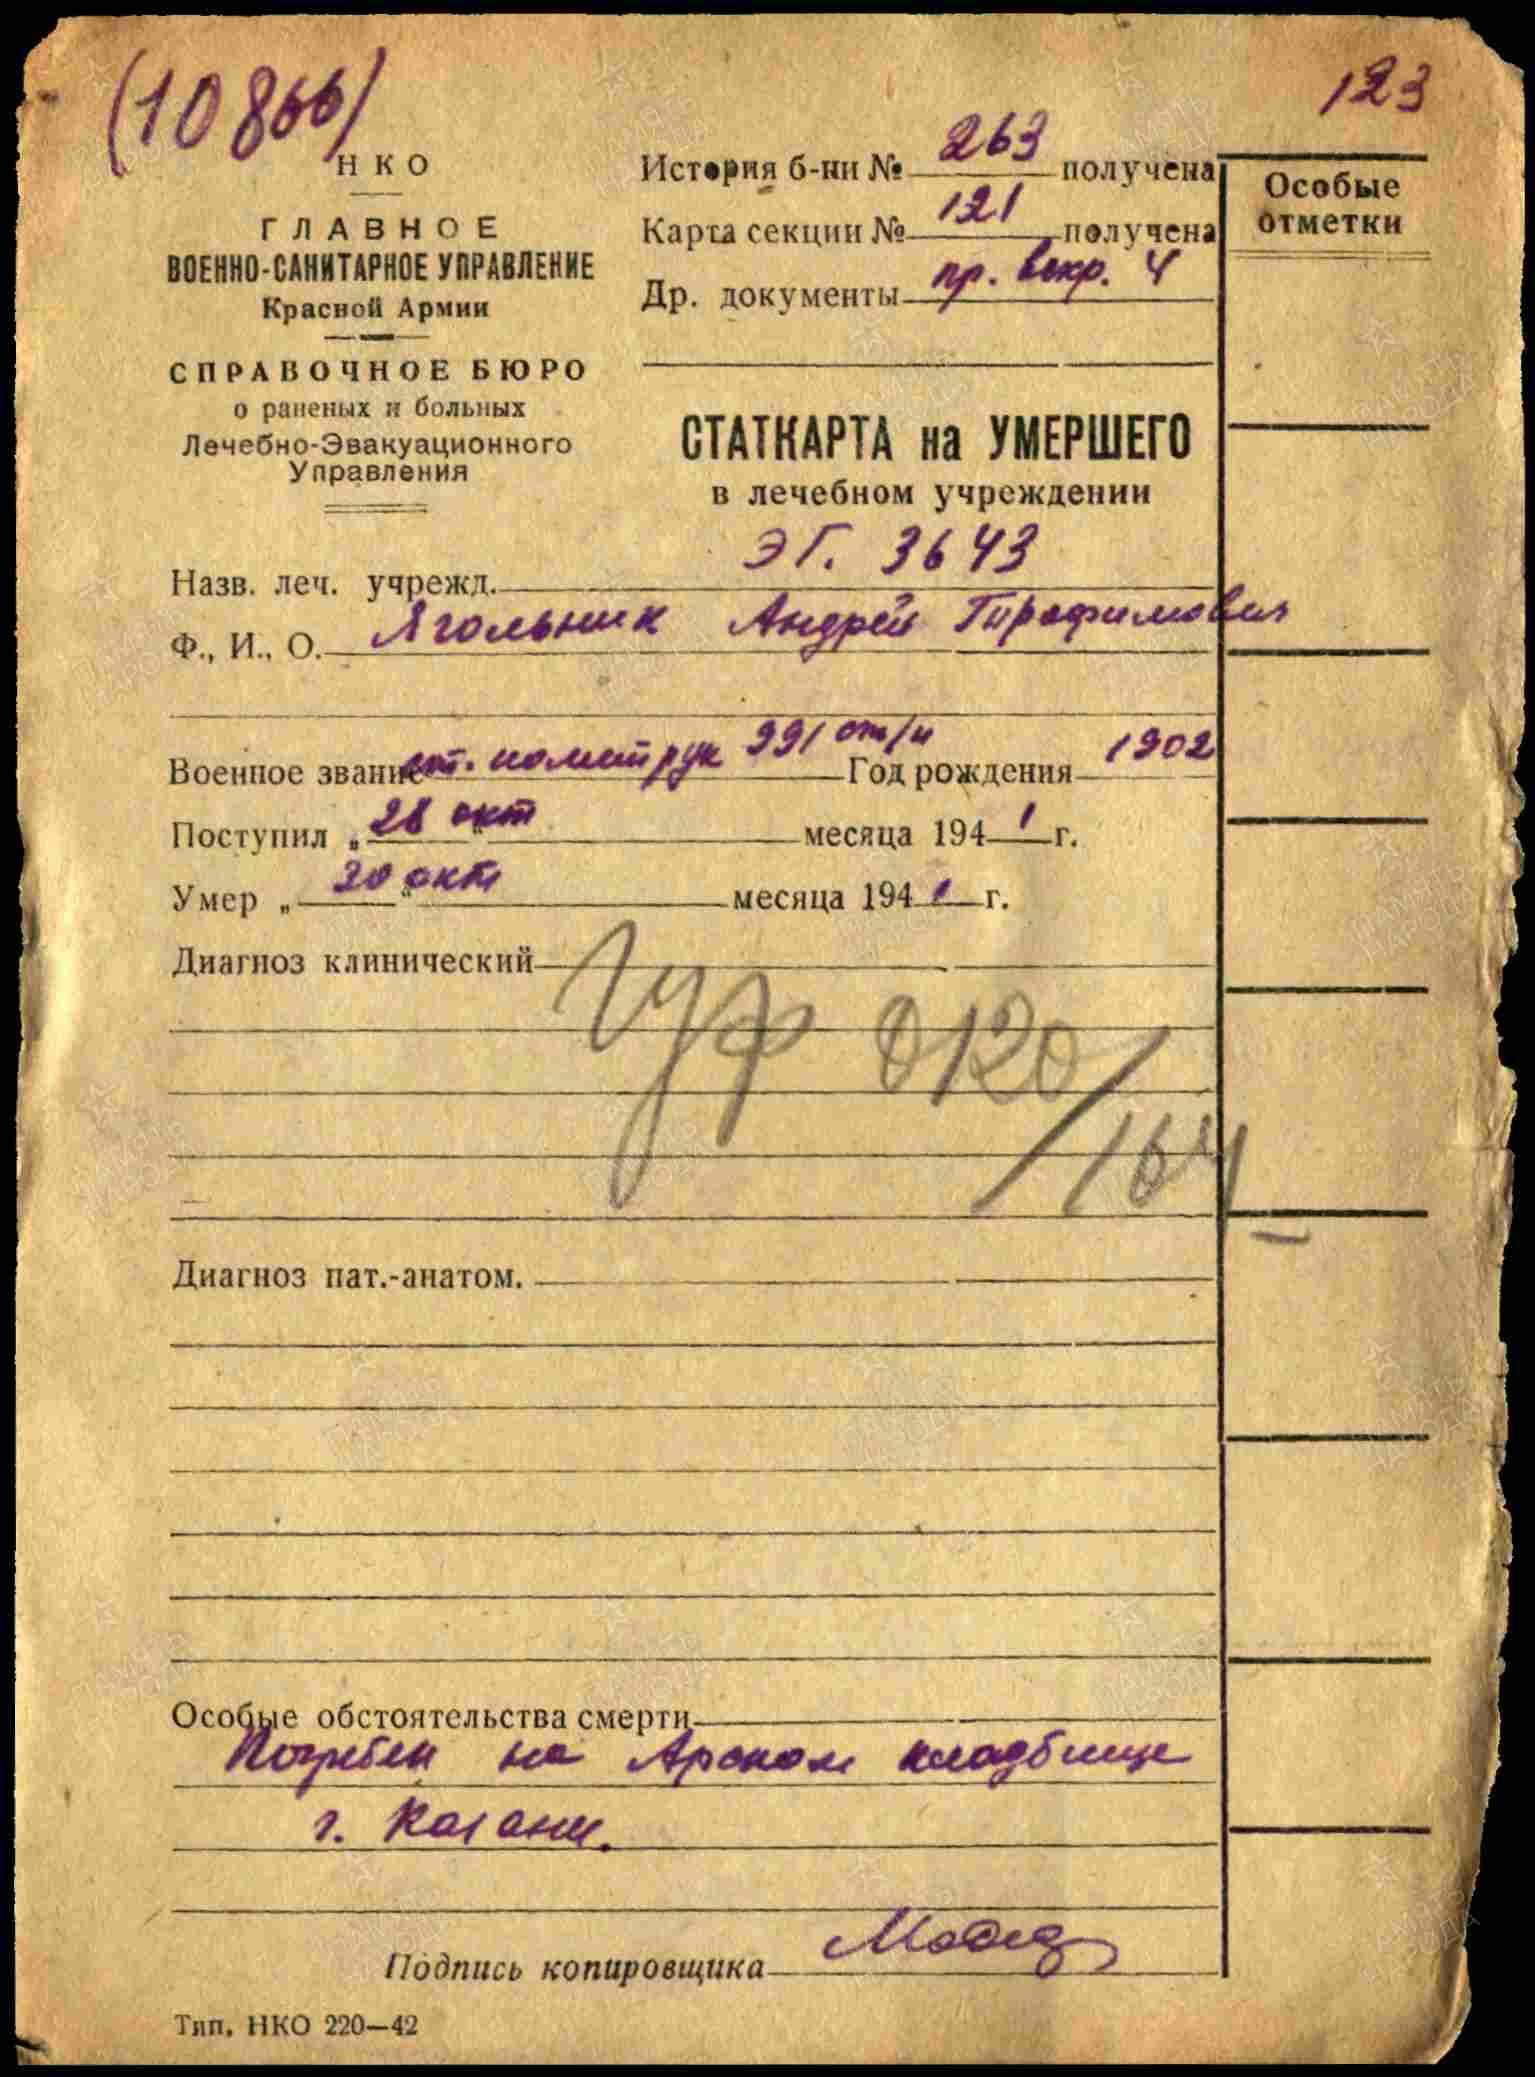 (10866)
123
НКО
ГЛАВНОЕ
ВОЕННО-САНИТАРНОЕ УПРАВЛЕНИЕ
Красной Армии
СПРАВОЧНОЕ БЮРО
о раненых и больных
Лечебно-Эвакуационного
Управления
История б-ни № 263 получена
Карта секции № 121 получена
Др. документы пр. вскр. 4
Особые
отметки
СТАТКАРТА на УМЕРШЕГО
в лечебном учреждении
Назв. леч. учрежд. ЭГ. 3643
Ф., И., О. Ягольник Андрей Трофимович
Военное звание ст. политрук 991 Год рождения 1902
Поступил „28“ окт месяца 1941 г.
Умер „30“ окт месяца 1941 г.
Диагноз клинический
0120/164
Диагноз пат.-анатом.
Особые обстоятельства смерти
Погребен на Арском кладбище
г. Казани.
Подпись копировщика
Тип. НКО 220—42